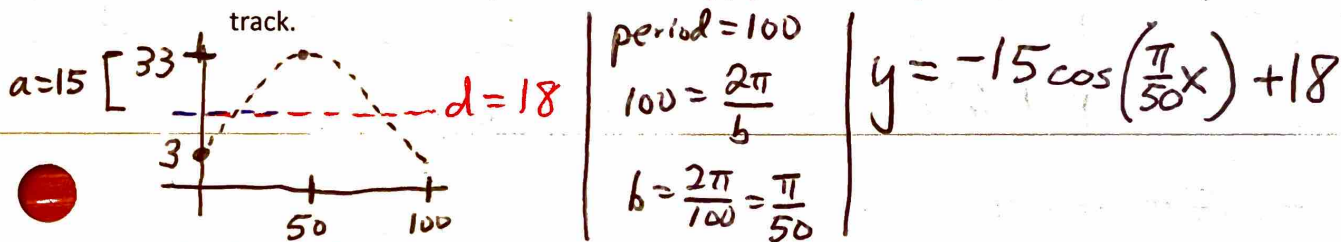 track.
a=15 [ 33
d = 18
3
50 100
period = 100
100 = 2π/b
b = 2π/100 = π/50
y = -15 cos(π/50 x) + 18